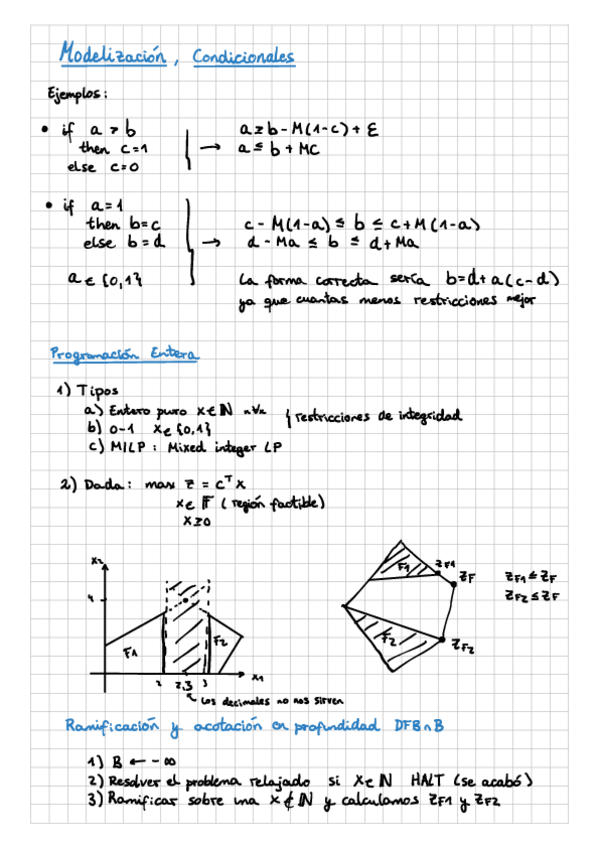 Modelización, Condicionales
Ejemplos:
• if a > b
then c=1
else c=0
→ a ≥ b - M(1-c) + ε
a ≤ b + MC
• if a=1
then b=c
else b=d
a ∈ {0,1}
→ c - M(1-a) ≤ b ≤ c+M(1-a)
d - Ma ≤ b ≤ d+Ma
La forma correcta sería b=d+a(c-d)
ya que cuantas menos restricciones mejor
Programación Entera
1) Tipos
a) Entero puro x∈ℕ ∀x
b) 0-1 x∈{0,1}
restricciones de integridad
c) MILP: Mixed integer LP
2) Dada: max z = cᵀx
x∈ F (región factible)
x≥0
x2
4
F1
F2
2 2,3 3
x1
Los decimales no nos sirven
F1
zF1
zF
F2
zF2
zF1 ≤ zF
zF2 ≤ zF
Ramificación y acotación en profundidad DFBnB
1) B ← -∞
2) Resolver el problema relajado si x∈ℕ HALT (se acabó)
3) Ramificar sobre una x∉ℕ y calculamos zF1 y zF2